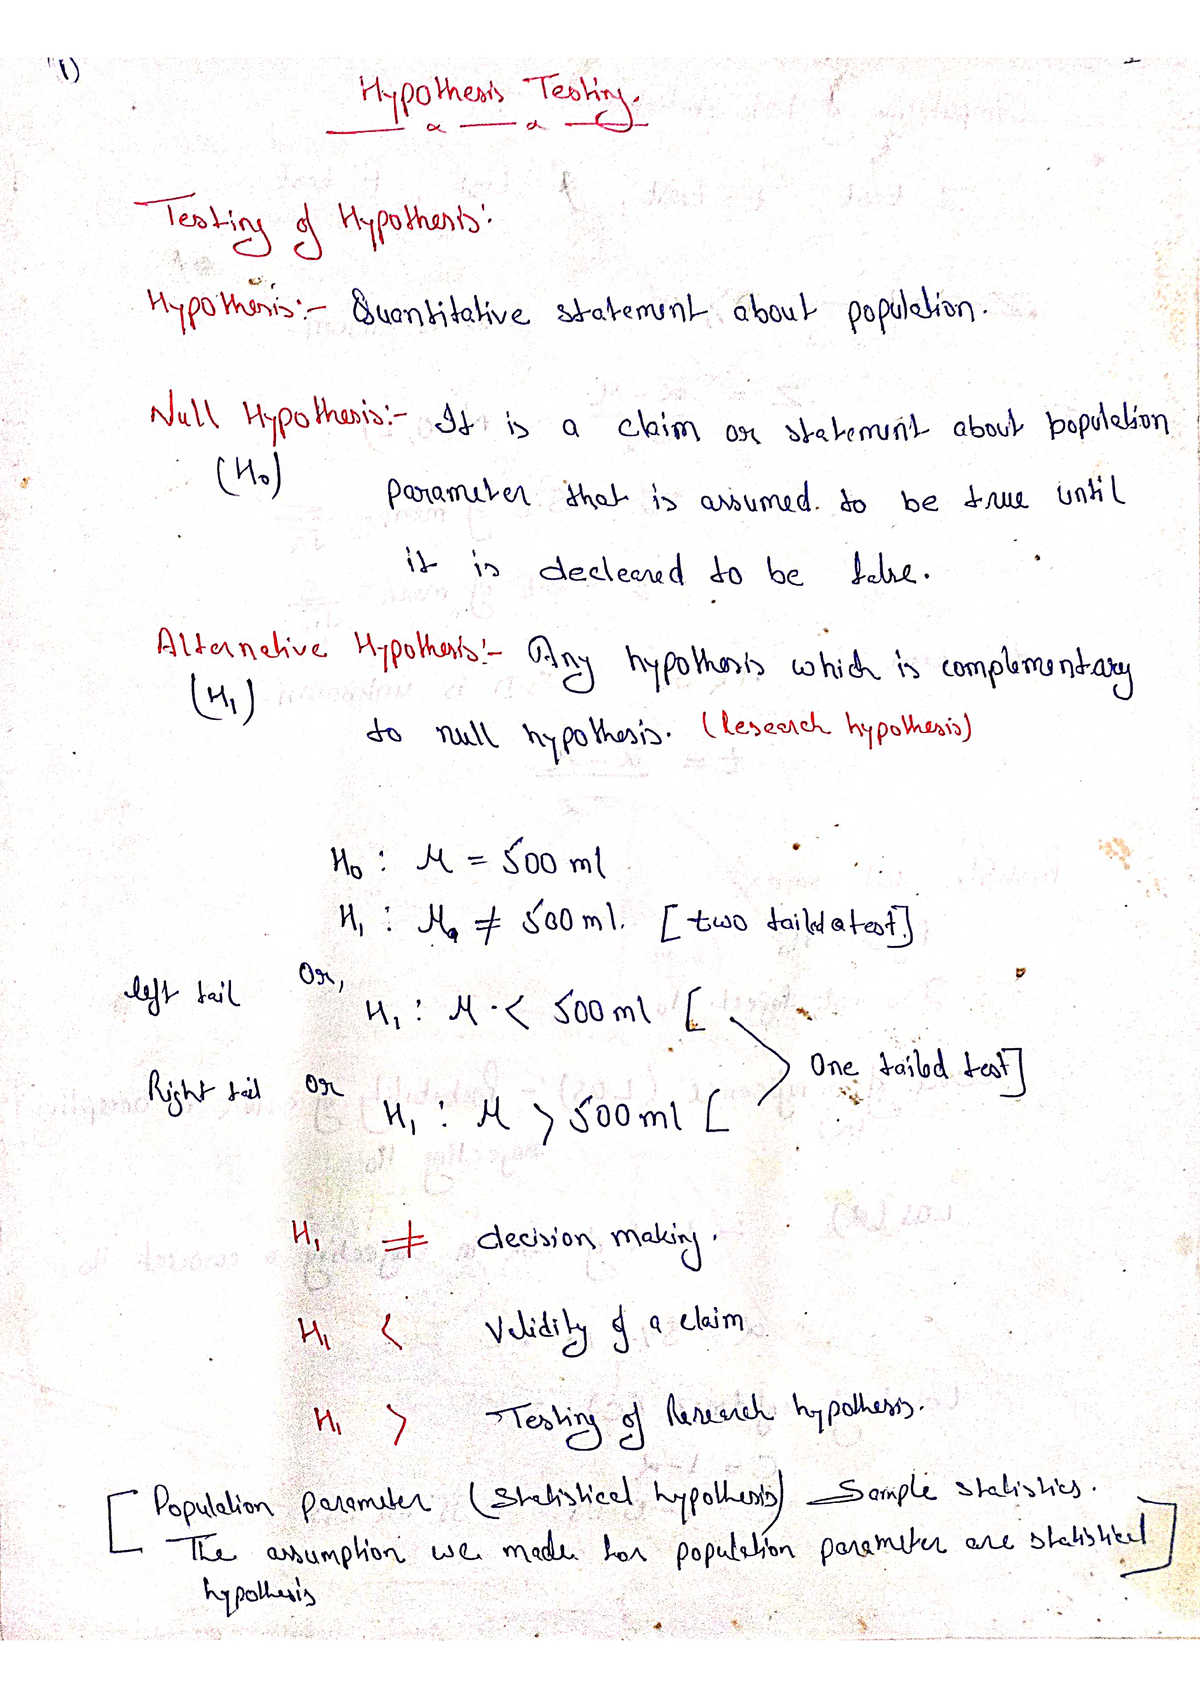 1)
Hypothesis Testing.
Testing of Hypothesis:
Hypothesis:- Quantitative statement about population.
Null Hypothesis:- It is a claim or statement about population
(H₀) parameter that is assumed to be true until
it is decleared to be false.
Alternative Hypothesis:- Any hypothesis which is complementary
(H₁) to null hypothesis. (Research hypothesis)
H₀ : M = 500 ml
H₁ : M ≠ 500 ml. [two tailed test]
left tail Or, H₁ : M < 500 ml [
One tailed test]
Right tail or H₁ : M > 500 ml [
H₁ ≠ decision making.
H₁ < Validity of a claim
H₁ > Testing of Research hypothesis.
[Population parameter (Statistical hypothesis) Sample statistics.
The assumption we made for population parameter are statistical]
hypothesis